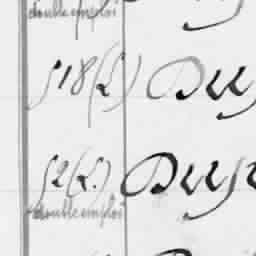 double emploi
518(L) Duy
52(L) Duy
double emploi